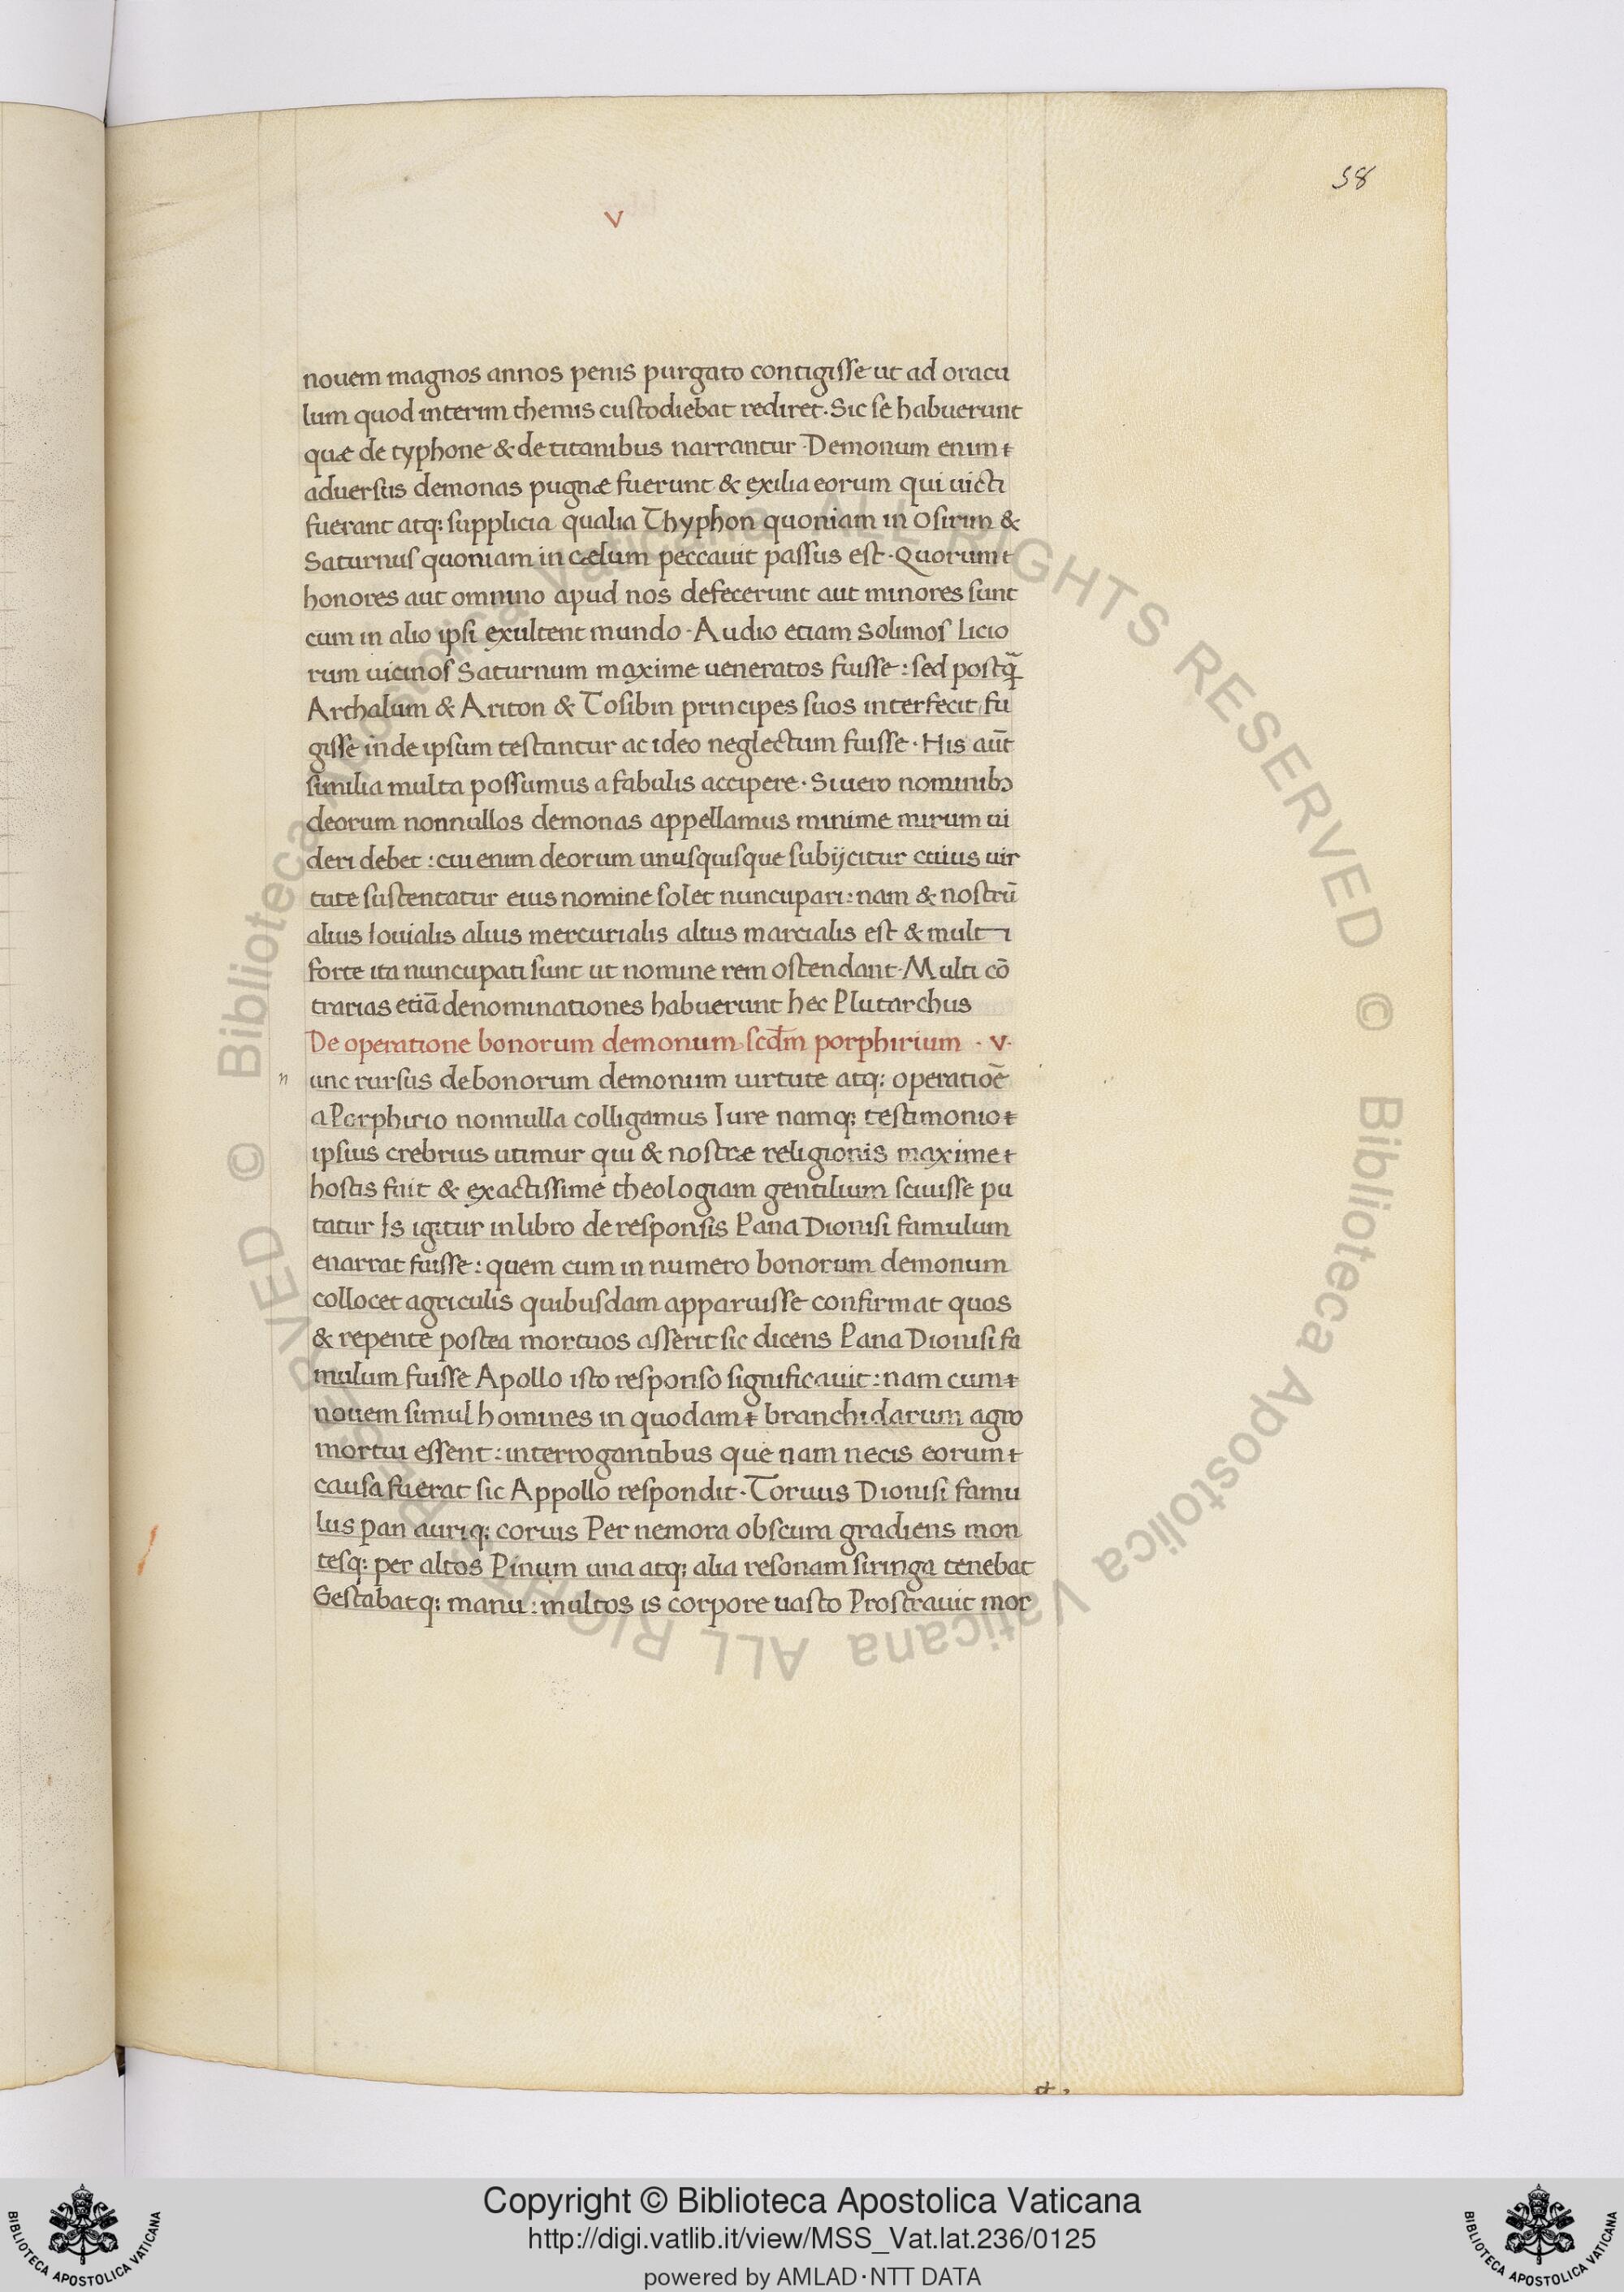 58
v
nouem magnos annos penis purgato contigisse ut ad oracu
lum quod interim themis custodiebat rediret · Sic se habuerunt
quæ de typhone & de titanibus narrantur · Demonum enim
aduersus demonas pugnæ fuerunt & exilia eorum qui uicti
fuerant atq; supplicia qualia Thyphon quoniam in Osirim &
Saturnus quoniam in cælum peccauit passus est · Quorum
honores aut omnino apud nos defecerunt aut minores sunt
cum in alio ipsi exultent mundo · Audio etiam Solimos Licio
rum uicinos Saturnum maxime ueneratos fuisse : sed postq̃
Archalum & Ariton & Tosibin principes suos interfecit fu
gisse inde ipsum testantur ac ideo neglectum fuisse · His aũt
similia multa possumus a fabulis accipere · Si uero nominibꝫ
deorum nonnullos demonas appellamus minime mirum ui
deri debet : cui enim deorum unusquisque subijcitur cuius uir
tute sustentatur eius nomine solet nuncupari : nam & nostrũ
alius Iouialis alius mercurialis alius martialis est & multi
forte ita nuncupati sunt ut nomine rem ostendant · Multi cõ
trarias etiã denominationes habuerunt hec Plutarchus
De operatione bonorum demonum scd̃m porphirium · v ·
n unc rursus de bonorum demonum uirtute atq; operatiõe
a Porphirio nonnulla colligamus Iure namq; testimonio
ipsius crebrius utimur qui & nostræ religionis maxime
hostis fuit & exactissime theologiam gentilium sciuisse pu
tatur Is igitur in libro de responsis Pana Dionisi famulum
enarrat fuisse : quem cum in numero bonorum demonum
collocet agriculis quibusdam apparuisse confirmat quos
& repente postea mortuos asserit sic dicens Pana Dionisi fa
mulum fuisse Apollo isto responso significauit : nam cum
nouem simul homines in quodam branchidarum agro
mortui essent : interrogantibus que nam necis eorum
causa fuerat sic Appollo respondit · Toruus Dionisi famu
lus pan auriq; coruis Per nemora obscura gradiens mon
tesq; per altos Pinum una atq; alia resonam siringa tenebat
Gestabatq; manu : multos is corpore uasto Prostrauit mor
© Biblioteca Apostolica Vaticana ALL RIGHTS RESERVED © Biblioteca Apostolica Vaticana ALL RIGHTS RESERVED
Copyright © Biblioteca Apostolica Vaticana
http://digi.vatlib.it/view/MSS_Vat.lat.236/0125
powered by AMLAD·NTT DATA
BIBLIOTECA APOSTOLICA VATICANA
BIBLIOTECA APOSTOLICA VATICANA